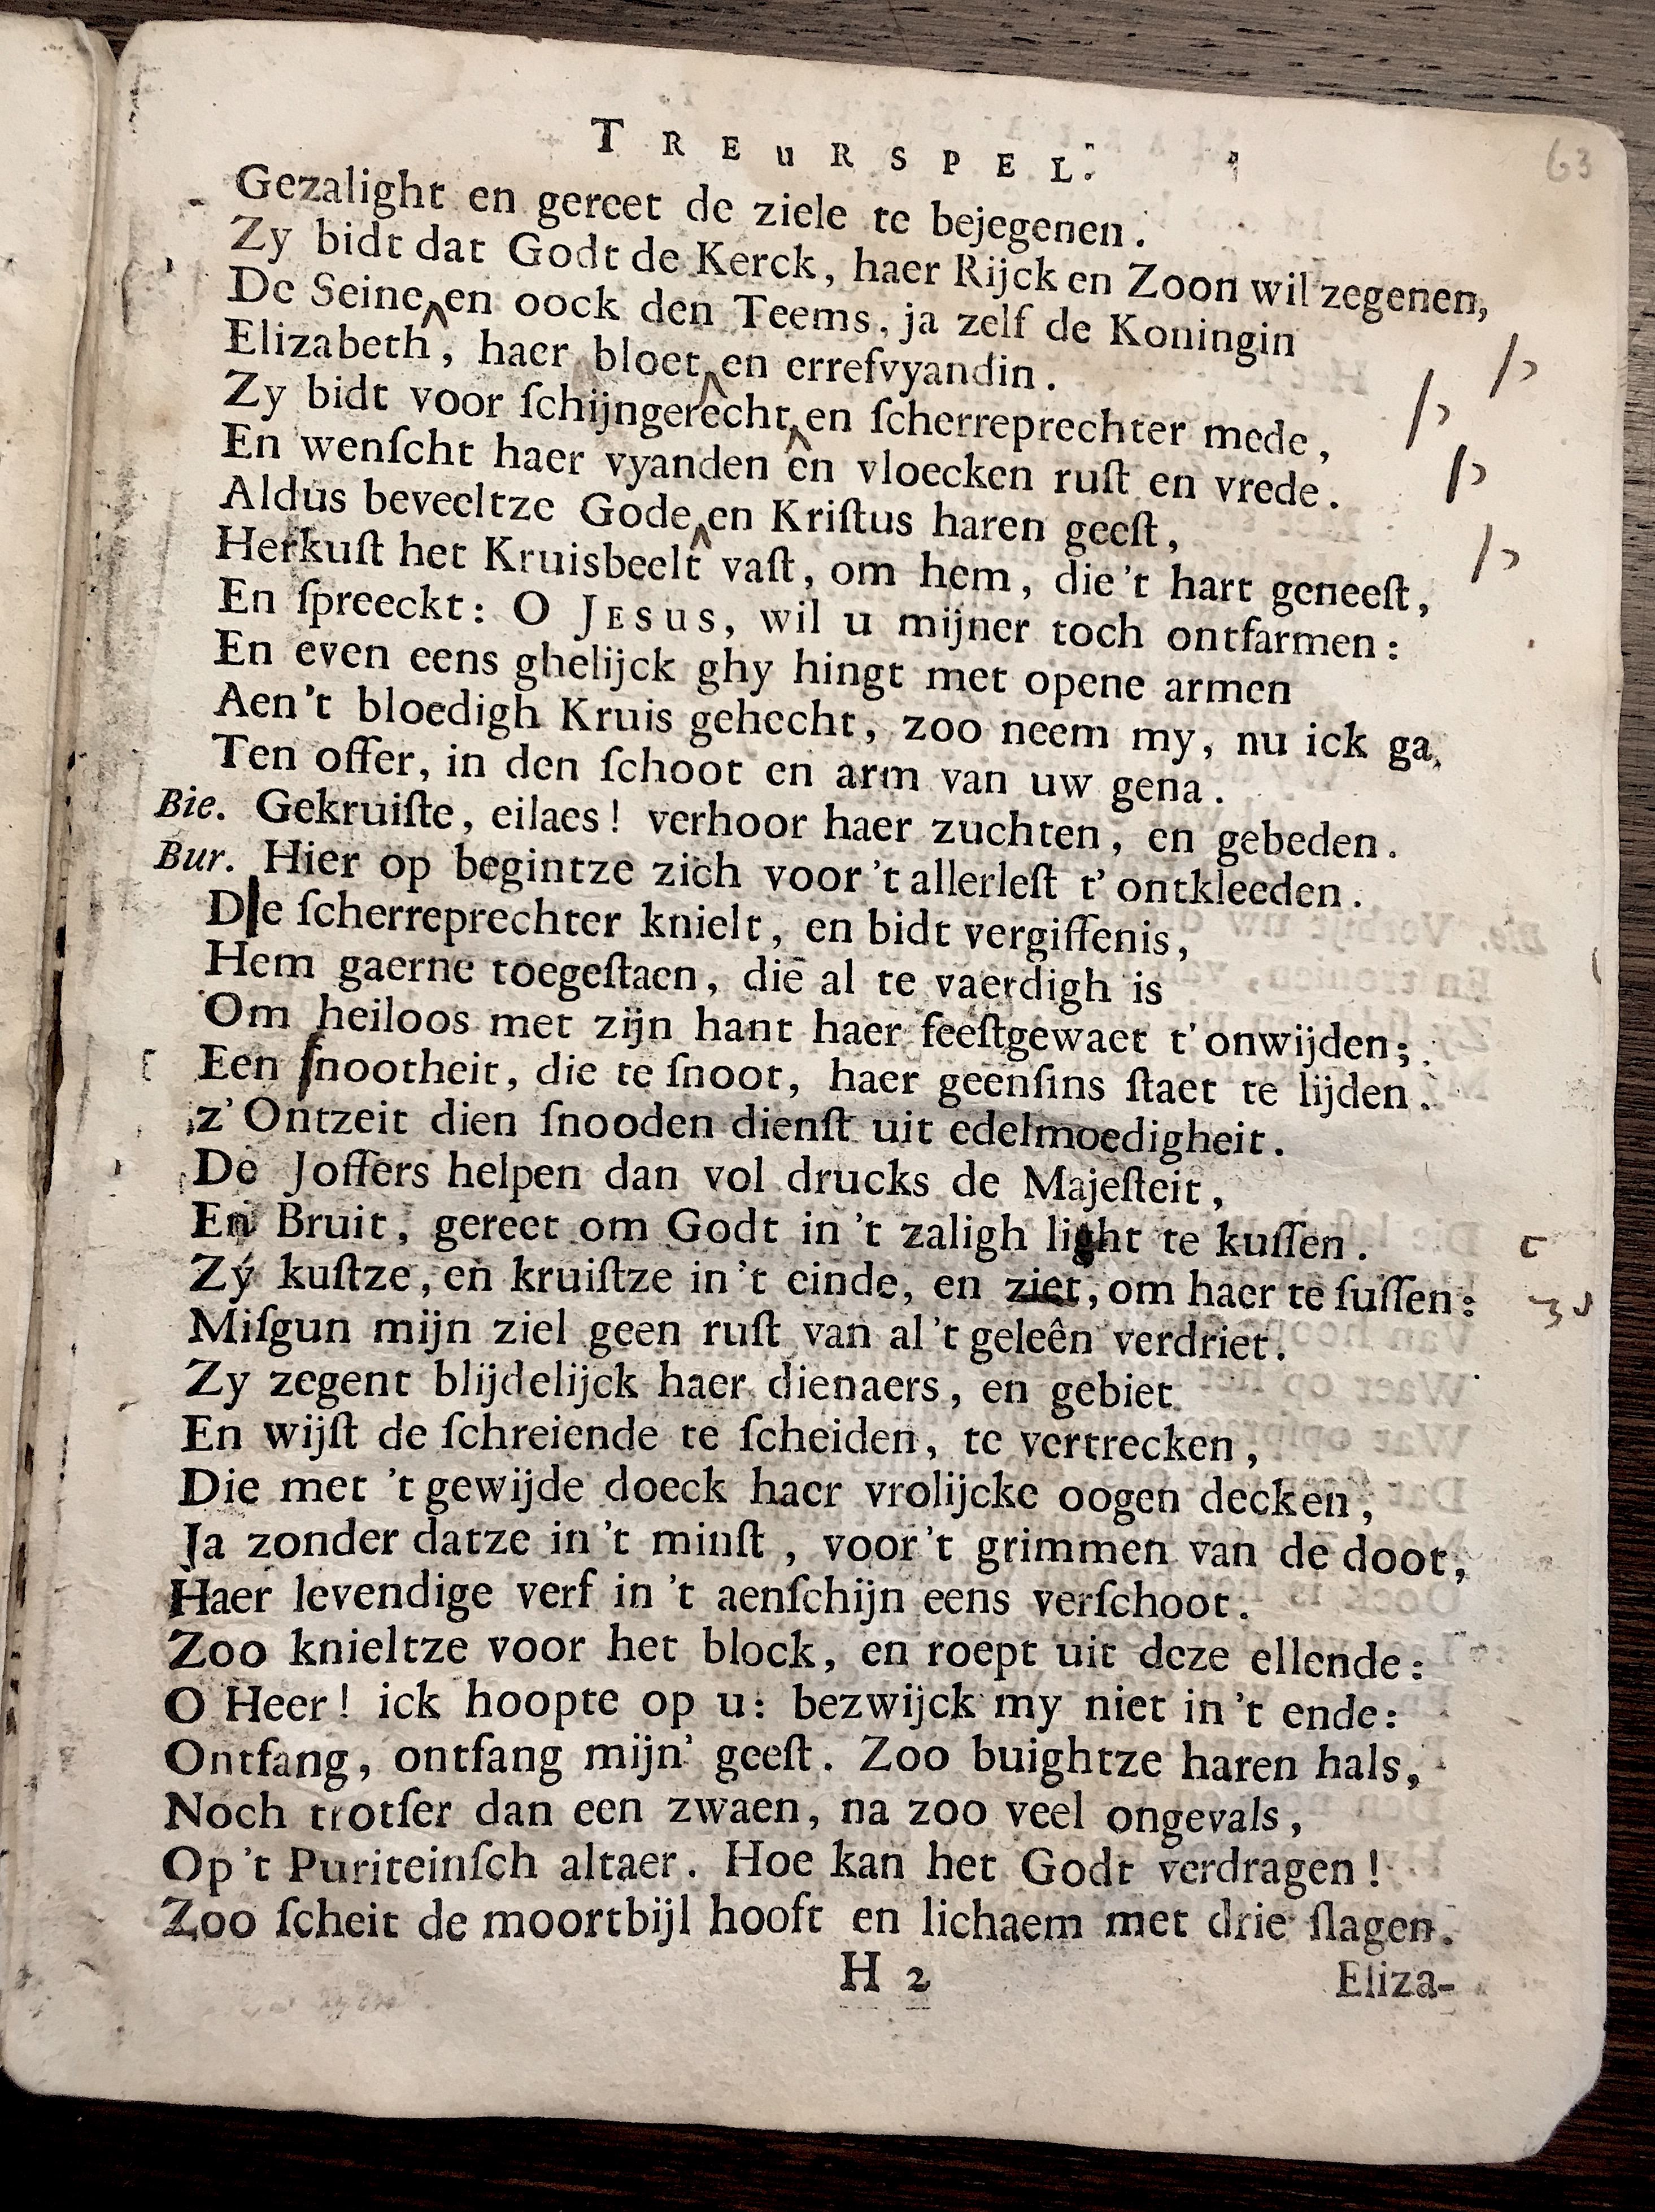 TREuRSPEL.
63
Gezalight en gereet de ziele te bejegenen.
Zy bidt dat Godt de Kerck, haer Rijck en Zoon wil zegenen,
De Seine en oock den Teems, ja zelf de Koningin
Elizabeth, haer bloet en errefvyandin.
Zy bidt voor ſchijngerecht en ſcherreprechter mede,
En wenſcht haer vyanden en vloecken ruſt en vrede.
Aldus beveeltze Gode en Kriſtus haren geeſt,
Herkuſt het Kruisbeelt vaſt, om hem, die 't hart geneeſt,
En ſpreeckt: O JESUS, wil u mijner toch ontfarmen:
En even eens ghelijck ghy hingt met opene armen
Aen 't bloedigh Kruis gehecht, zoo neem my, nu ick ga,
Ten offer, in den ſchoot en arm van uw gena.
Bie. Gekruiſte, eilaes! verhoor haer zuchten, en gebeden.
Bur. Hier op begintze zich voor 't allerleſt t' ontkleeden.
Die ſcherreprechter knielt, en bidt vergiffenis,
Hem gaerne toegeſtaen, die al te vaerdigh is
Om heiloos met zijn hant haer feeſtgewaet t' onwijden;
Een ſnootheit, die te ſnoot, haer geenſins ſtaet te lijden.
z' Ontzeit dien ſnooden dienſt uit edelmoedigheit.
De Joffers helpen dan vol drucks de Majeſteit,
En Bruit, gereet om Godt in 't zaligh light te kuſſen.
Zy kuſtze, en kruiſtze in 't einde, en ziet, om haer te ſuſſen:
Miſgun mijn ziel geen ruſt van al 't geleên verdriet.
Zy zegent blijdelijck haer dienaers, en gebiet
En wijſt de ſchreiende te ſcheiden, te vertrecken,
Die met 't gewijde doeck haer vrolijcke oogen decken,
Ja zonder datze in 't minſt, voor 't grimmen van de doot,
Haer levendige verf in 't aenſchijn eens verſchoot.
Zoo knieltze voor het block, en roept uit deze ellende:
O Heer! ick hoopte op u: bezwijck my niet in 't ende:
Ontfang, ontfang mijn' geeſt. Zoo buightze haren hals,
Noch trotſer dan een zwaen, na zoo veel ongevals,
Op 't Puriteinſch altaer. Hoe kan het Godt verdragen!
Zoo ſcheit de moortbijl hooft en lichaem met drie ſlagen.
H 2
Eliza-